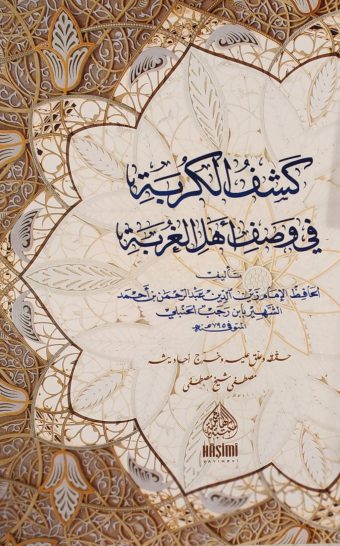 كشف الكربة
في وصف أهل الغربة
تأليف
الحافظ الإمام زين الدين عبد الرحمن بن أحمد
الشهير بابن رجب الحنبلي
المتوفى ٧٩٥ هـ
حققه وعلق عليه وخرج أحاديثه
مصطفى شيخ مصطفى
HÂŞİMİ
YAYINEVİ